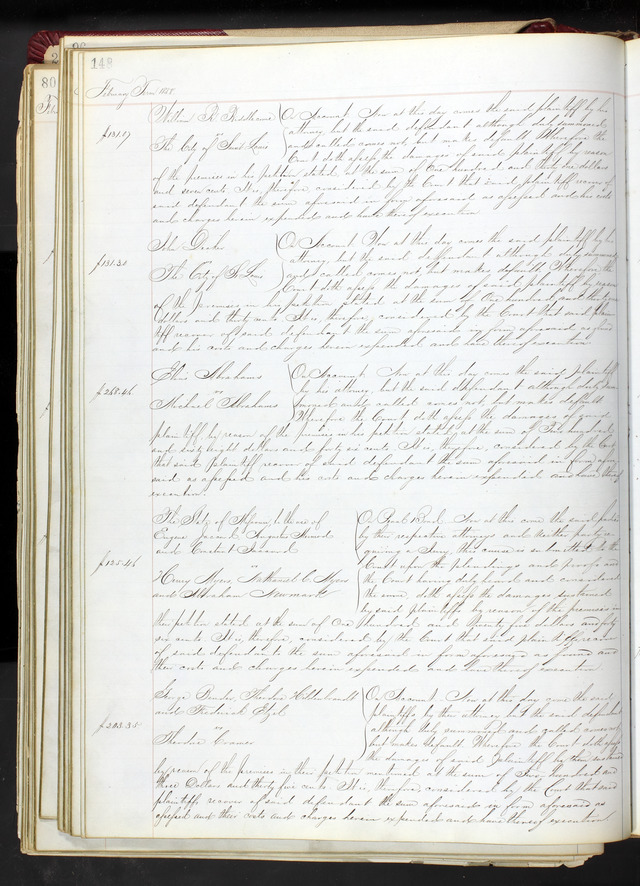 148
February Term 18
William R.
$101.07
vs
The City of Saint Louis
On Account Now at this day comes the said plaintiff by his
attorney, but the said defendant although duly summoned
and called comes not, but makes default Wherefore the
Court doth assess the damages of said plaintiff by reason
of the premises in his petition stated at the sum of One hundred and one dollars
and seven cents It is, therefore, considered by the Court that said plaintiff recover of
said defendant the sum aforesaid in form aforesaid as assessed and his costs
and charges herein expended and have thereof execution
John
$131.30
vs
The City of St Louis
On Account Now at this day comes the said plaintiff by his
attorney, but the said defendant although duly summoned
and called comes not but makes default Wherefore the
Court doth assess the damages of said plaintiff by reason
of the premises in his petition stated at the sum of One hundred and thirty one
dollars and thirty cents It is, therefore, considered by the Court that said plain
tiff recover of said defendant the sum aforesaid in form aforesaid assessed
and his costs and charges herein expended and have thereof execution
Abrahams
$268.46
vs
Michael Abrahams
On Account Now at this day comes the said plaintiff
by his attorney, but the said defendant although duly sum
moned and called comes not, but makes default
Wherefore the Court doth assess the damages of said
plaintiff by reason of the premises in his petition stated at the sum of Two hundred
and sixty eight dollars and forty six cents It is, therefore, considered by the Court
that said plaintiff recover of said defendant the sum aforesaid in form afore
said as assessed and his costs and charges herein expended and have thereof
execution
The State of Missouri to the use of
Eugene Jaccard, Augustus
and Constant Jaccard
$125.46
vs
Henry Myers, Nathaniel C. Myers
and Abraham Newmark
On Now at this day come the said parties
by their respective attorneys and neither party re
quiring a Jury this cause is submitted to the
Court upon the pleadings and proofs and
the Court having duly heard and considered
the same, doth assess the damages sustained
by said plaintiff by reason of the premises in
the petition stated at the sum of One hundred and Twenty five dollars and forty
six cents It is, therefore, considered by the Court that said plaintiff recover
of said defendants the sum aforesaid in form aforesaid as found and
their costs and charges herein expended and have thereof execution
George Theodore
and Frederick
$203.35
vs
Theodore Cramer
On Account Now at this day come the said
plaintiffs by their attorney but the said defendant
although duly summoned and called comes not
but makes default Wherefore the Court doth assess
the damages of said plaintiff by them sustained
by reason of the premises in their petition mentioned at the sum of Two hundred and
three Dollars and thirty five cents It is, therefore, considered by the Court that said
plaintiffs recover of said defendant the sum aforesaid in form aforesaid as
assessed and their costs and charges herein expended and have thereof execution